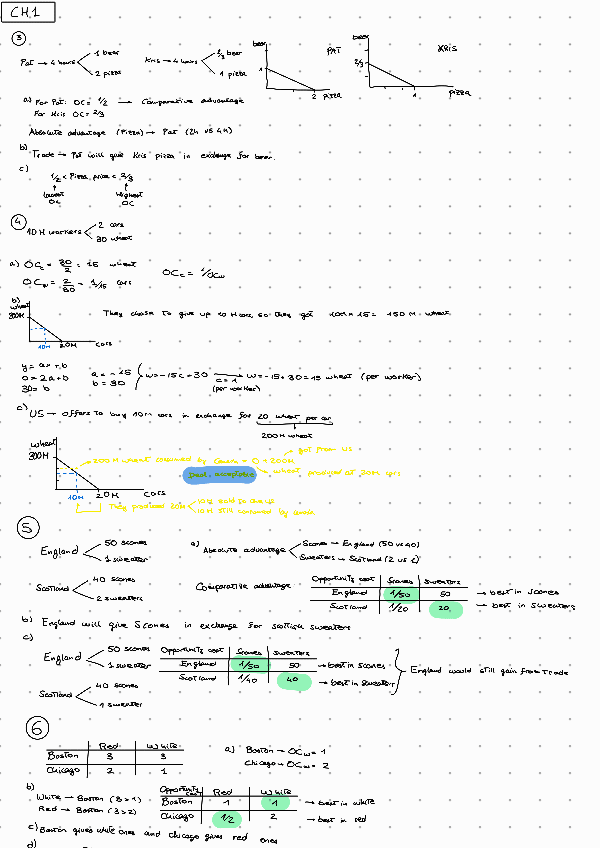 CH.1
3
Pat → 4 hours
1 beer
2 pizza
Kris → 4 hours
2/3 beer
1 pizza
beer
1
2 pizza
PAT
beer
2/3
1
pizza
KRIS
a) For Pat: OC = 1/2 → Comparative advantage
For Kris OC = 2/3
Absolute advantage (Pizza) → Pat (2h vs 4h)
b) Trade → Pat will give Kris pizza in exchange for beer.
c)
1/2 < Pizza price < 2/3
lowest OC
highest OC
4
10H workers
2 cars
30 wheat
a) OCc = 30/2 = 15 wheat
OCw = 2/30 = 1/15 cars
OCc = 1/OCw
b)
wheat
300M
10M
20M
cars
They chose to give up 10M cars, so they got 10M × 15 = 150M wheat
y = ax + b
0 = 2a + b
30 = b
a = -15
b = 30
w = -15c + 30
(per worker)
c = 1
w = -15 + 30 = 15 wheat (per worker)
c) US → offers to buy 10M cars in exchange for 20 wheat per car
200M wheat
wheat
300M
10M
20M
cars
got from US
wheat produced at
They produced 20M
10M sold to the US
5
England
50 scones
1 sweater
Scotland
40 scones
2 sweaters
a) Absolute advantage
Scones → England (50 vs 40)
Sweaters → Scotland (2 vs 1)
Comparative advantage
Opportunity cost Scones Sweaters
England 1/50 50 → best in scones
Scotland 1/20 20 → best in sweaters
b) England will give Scones in exchange for scottish sweaters
c)
England
50 scones
1 sweater
Scotland
40 scones
1 sweater
Opportunity cost Scones Sweaters
England 1/50 50 → best in scones
Scotland 1/40 40 → best in sweater
England would still gain from trade
6
Red White
Boston 3 3
Chicago 2 1
a) Boston → OCw = 1
Chicago → OCw = 2
b)
White → Boston (3 > 1)
Red → Boston (3 > 2)
Opportunity cost Red White
Boston 1 1 → best in white
Chicago 1/2 2 → best in red
c) Boston gives white ones and chicago gives red ones
d)